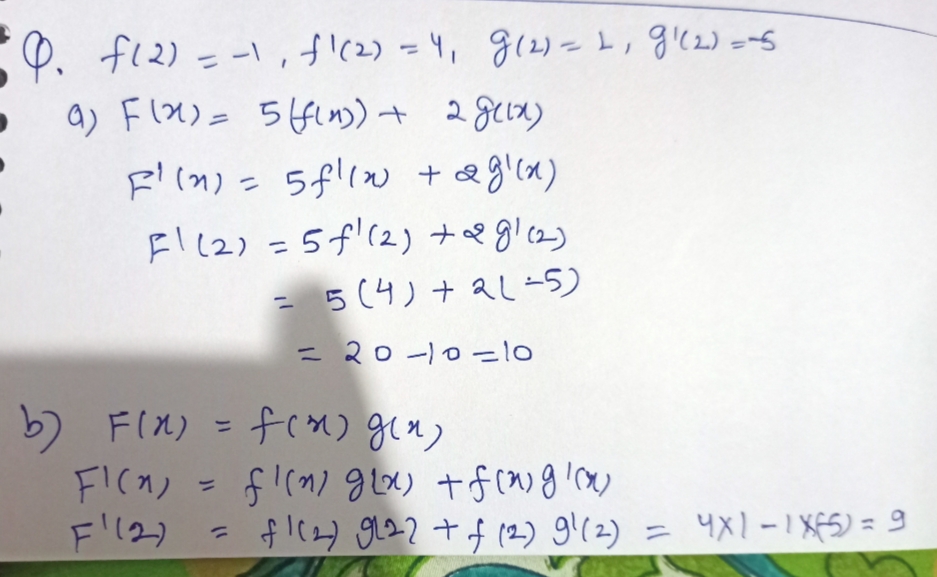 Q. f(2) = -1, f'(2) = 4, g(2) = 1, g'(2) = -5
a) F(x) = 5(f(x)) + 2g(x)
F'(x) = 5f'(x) + 2g'(x)
F'(2) = 5f'(2) + 2g'(2)
= 5(4) + 2(-5)
= 20 - 10 = 10
b) F(x) = f(x) g(x)
F'(x) = f'(x) g(x) + f(x) g'(x)
F'(2) = f'(2) g(2) + f(2) g'(2) = 4x1 - 1x(-5) = 9